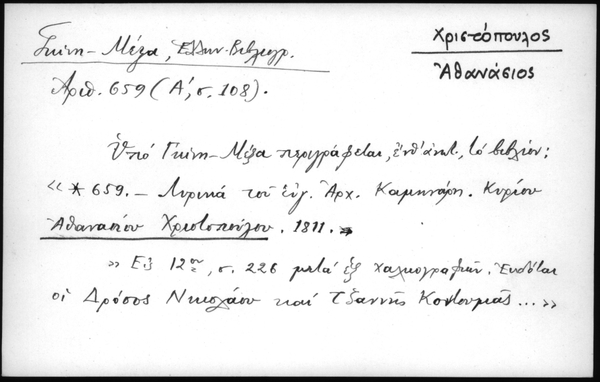 Γκίνη - Μέξα, Ἑλλην. Βιβλιογρ.
Χριστόπουλος
Ἀθανάσιος
Ἀριθ. 659 (Α', σ. 108).
Ὑπό Γκίνη - Μέξα περιγράφεται, ἐνθ' ἀνωτ., τό βιβλίον:
« * 659. — Λυρικά τοῦ εὐγ. Ἄρχ. Καμηνάρη. Κυρίου
Ἀθανασίου Χριστοπούλου. 1811. »
» Εἰς 12ον, σ. 226 μετά ἕξ χαλκογραφιῶν. Ἐκδόται
οἱ Δρόσος Νικολάου καί Τζαννῆς Κοντουμᾶς ... »